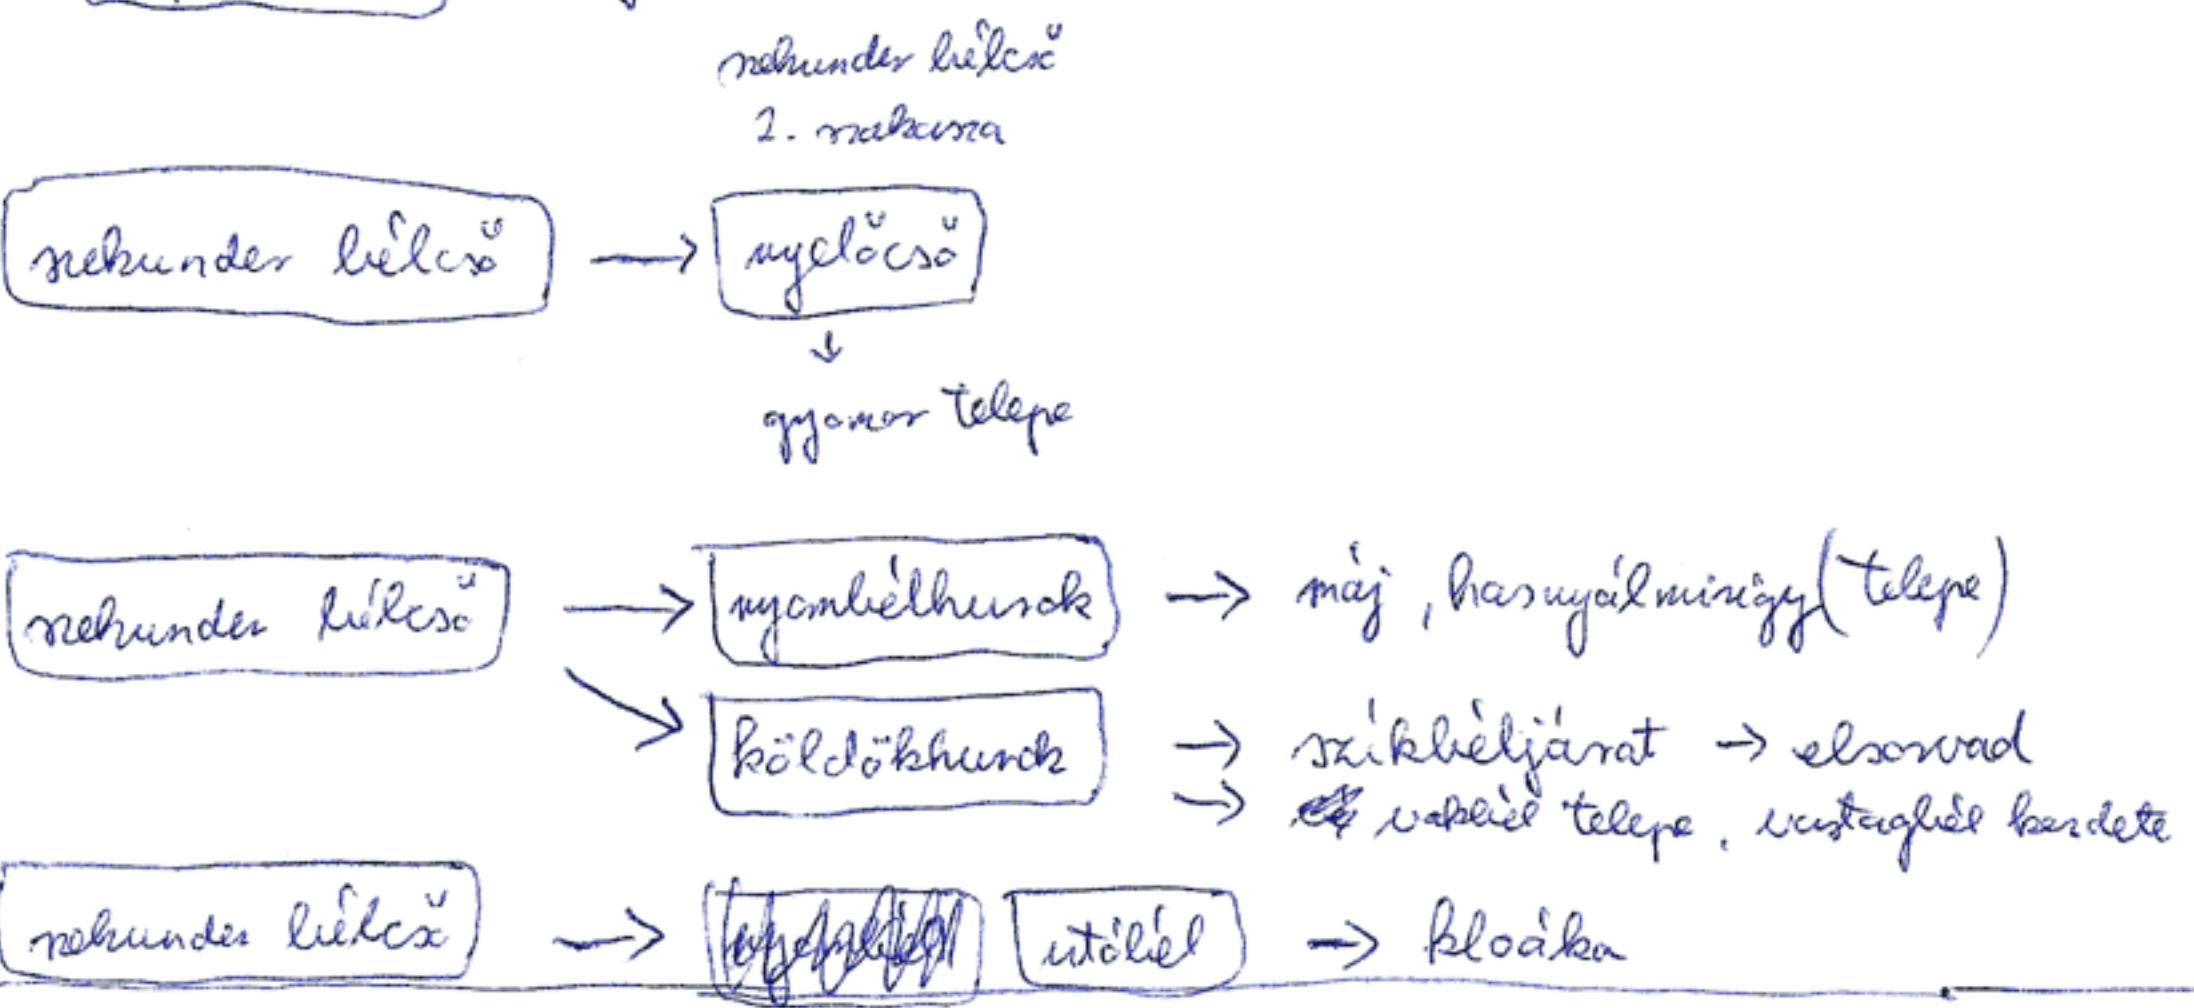 szekunder bélcső
2. szakasza
szekunder bélcső → nyelőcső
↓
gyomor telepe
szekunder bélcső → nyombélhurok → máj, hasnyálmirigy (telepe)
köldökhurok → szikbéljárat → elsorvad
→ vakbél telepe, vastagbél kezdete
szekunder bélcső → utóbél → kloáka